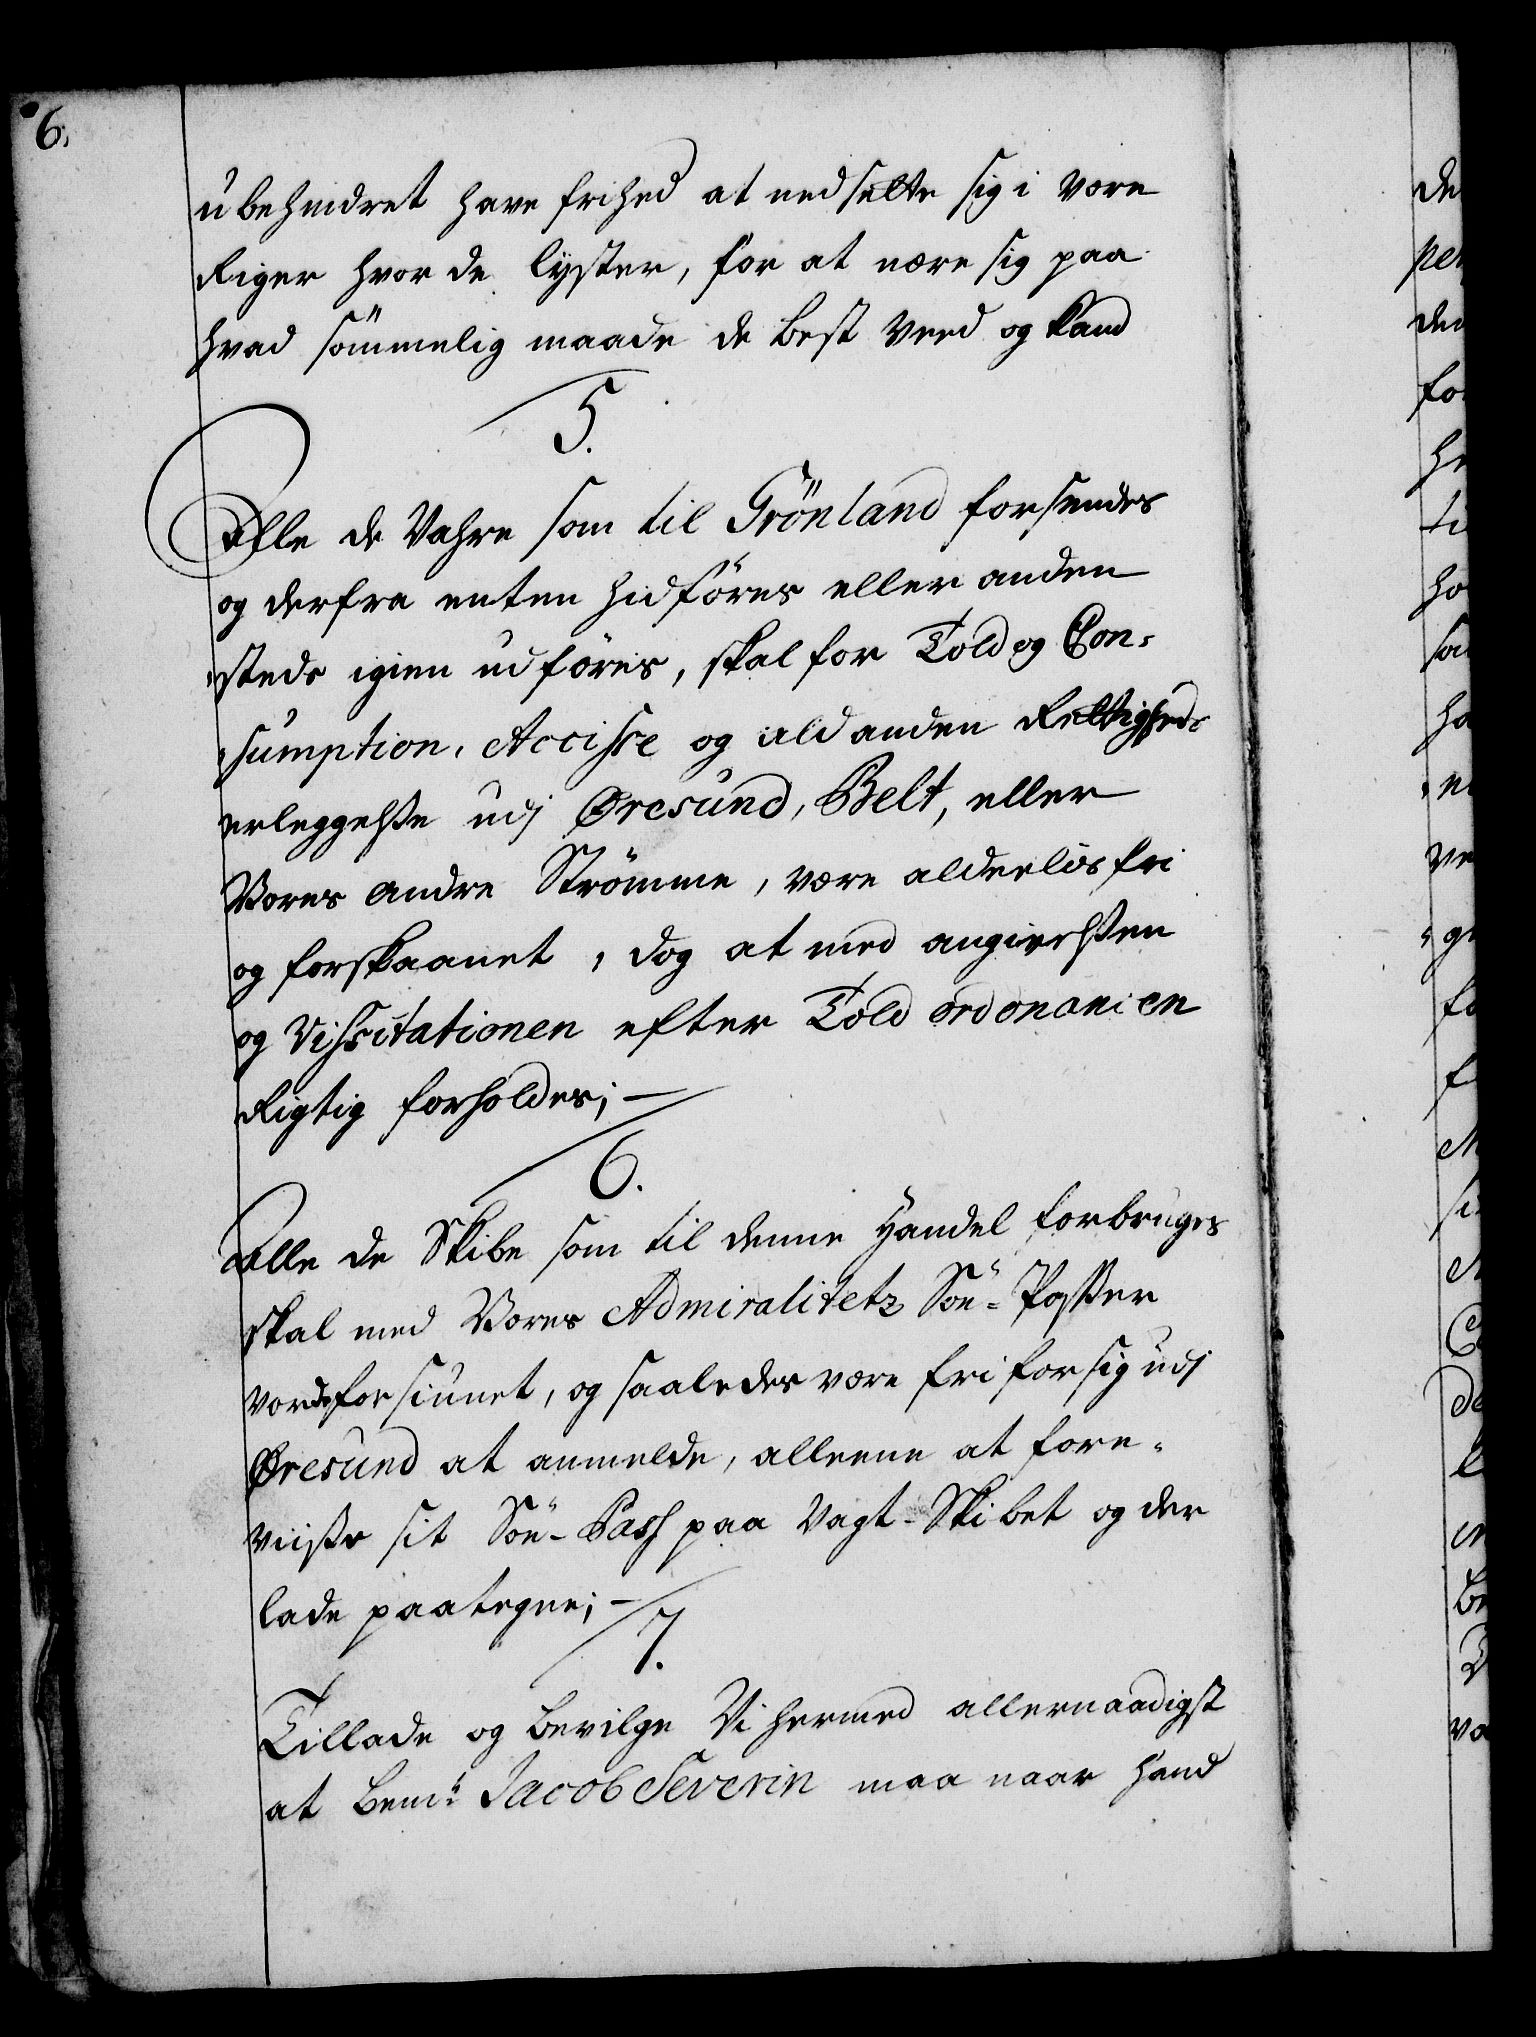 6.
ubehindret have frihed at nedsette sig i vore
Riger hvor de lyster, for at nære sig paa
hvad sömmelig maade de best veed og kand
5.
Alle de Vahre som til Grönland forsendes
og derfra enten hidföres eller anden
steds igien udföres, skal for Told og Con-
sumption, Accisse og ald anden Rettigheds
erleggelse udj Øresund, Belt, eller
Vores andre Strömme, være alderlös fri
og forskaanet, dog at med angivelsen
og Vissitationen efter Told ordonancen
Rigtig forholdes;
6.
Alle de Skibe som til denne Handel forbruges
skal med Vores Admiralitetz Söe-Passer
vorde forsiunet, og saaledes være fri for sig udj
Øresund at anmelde, alleene at fore-
viise sit Söe-Pass paa Vagt-Skibet og der
lade paategne;
7.
Tillade og bevilge Vi hermed allernaadigst
at bemte Jacob Severin maa naar hand